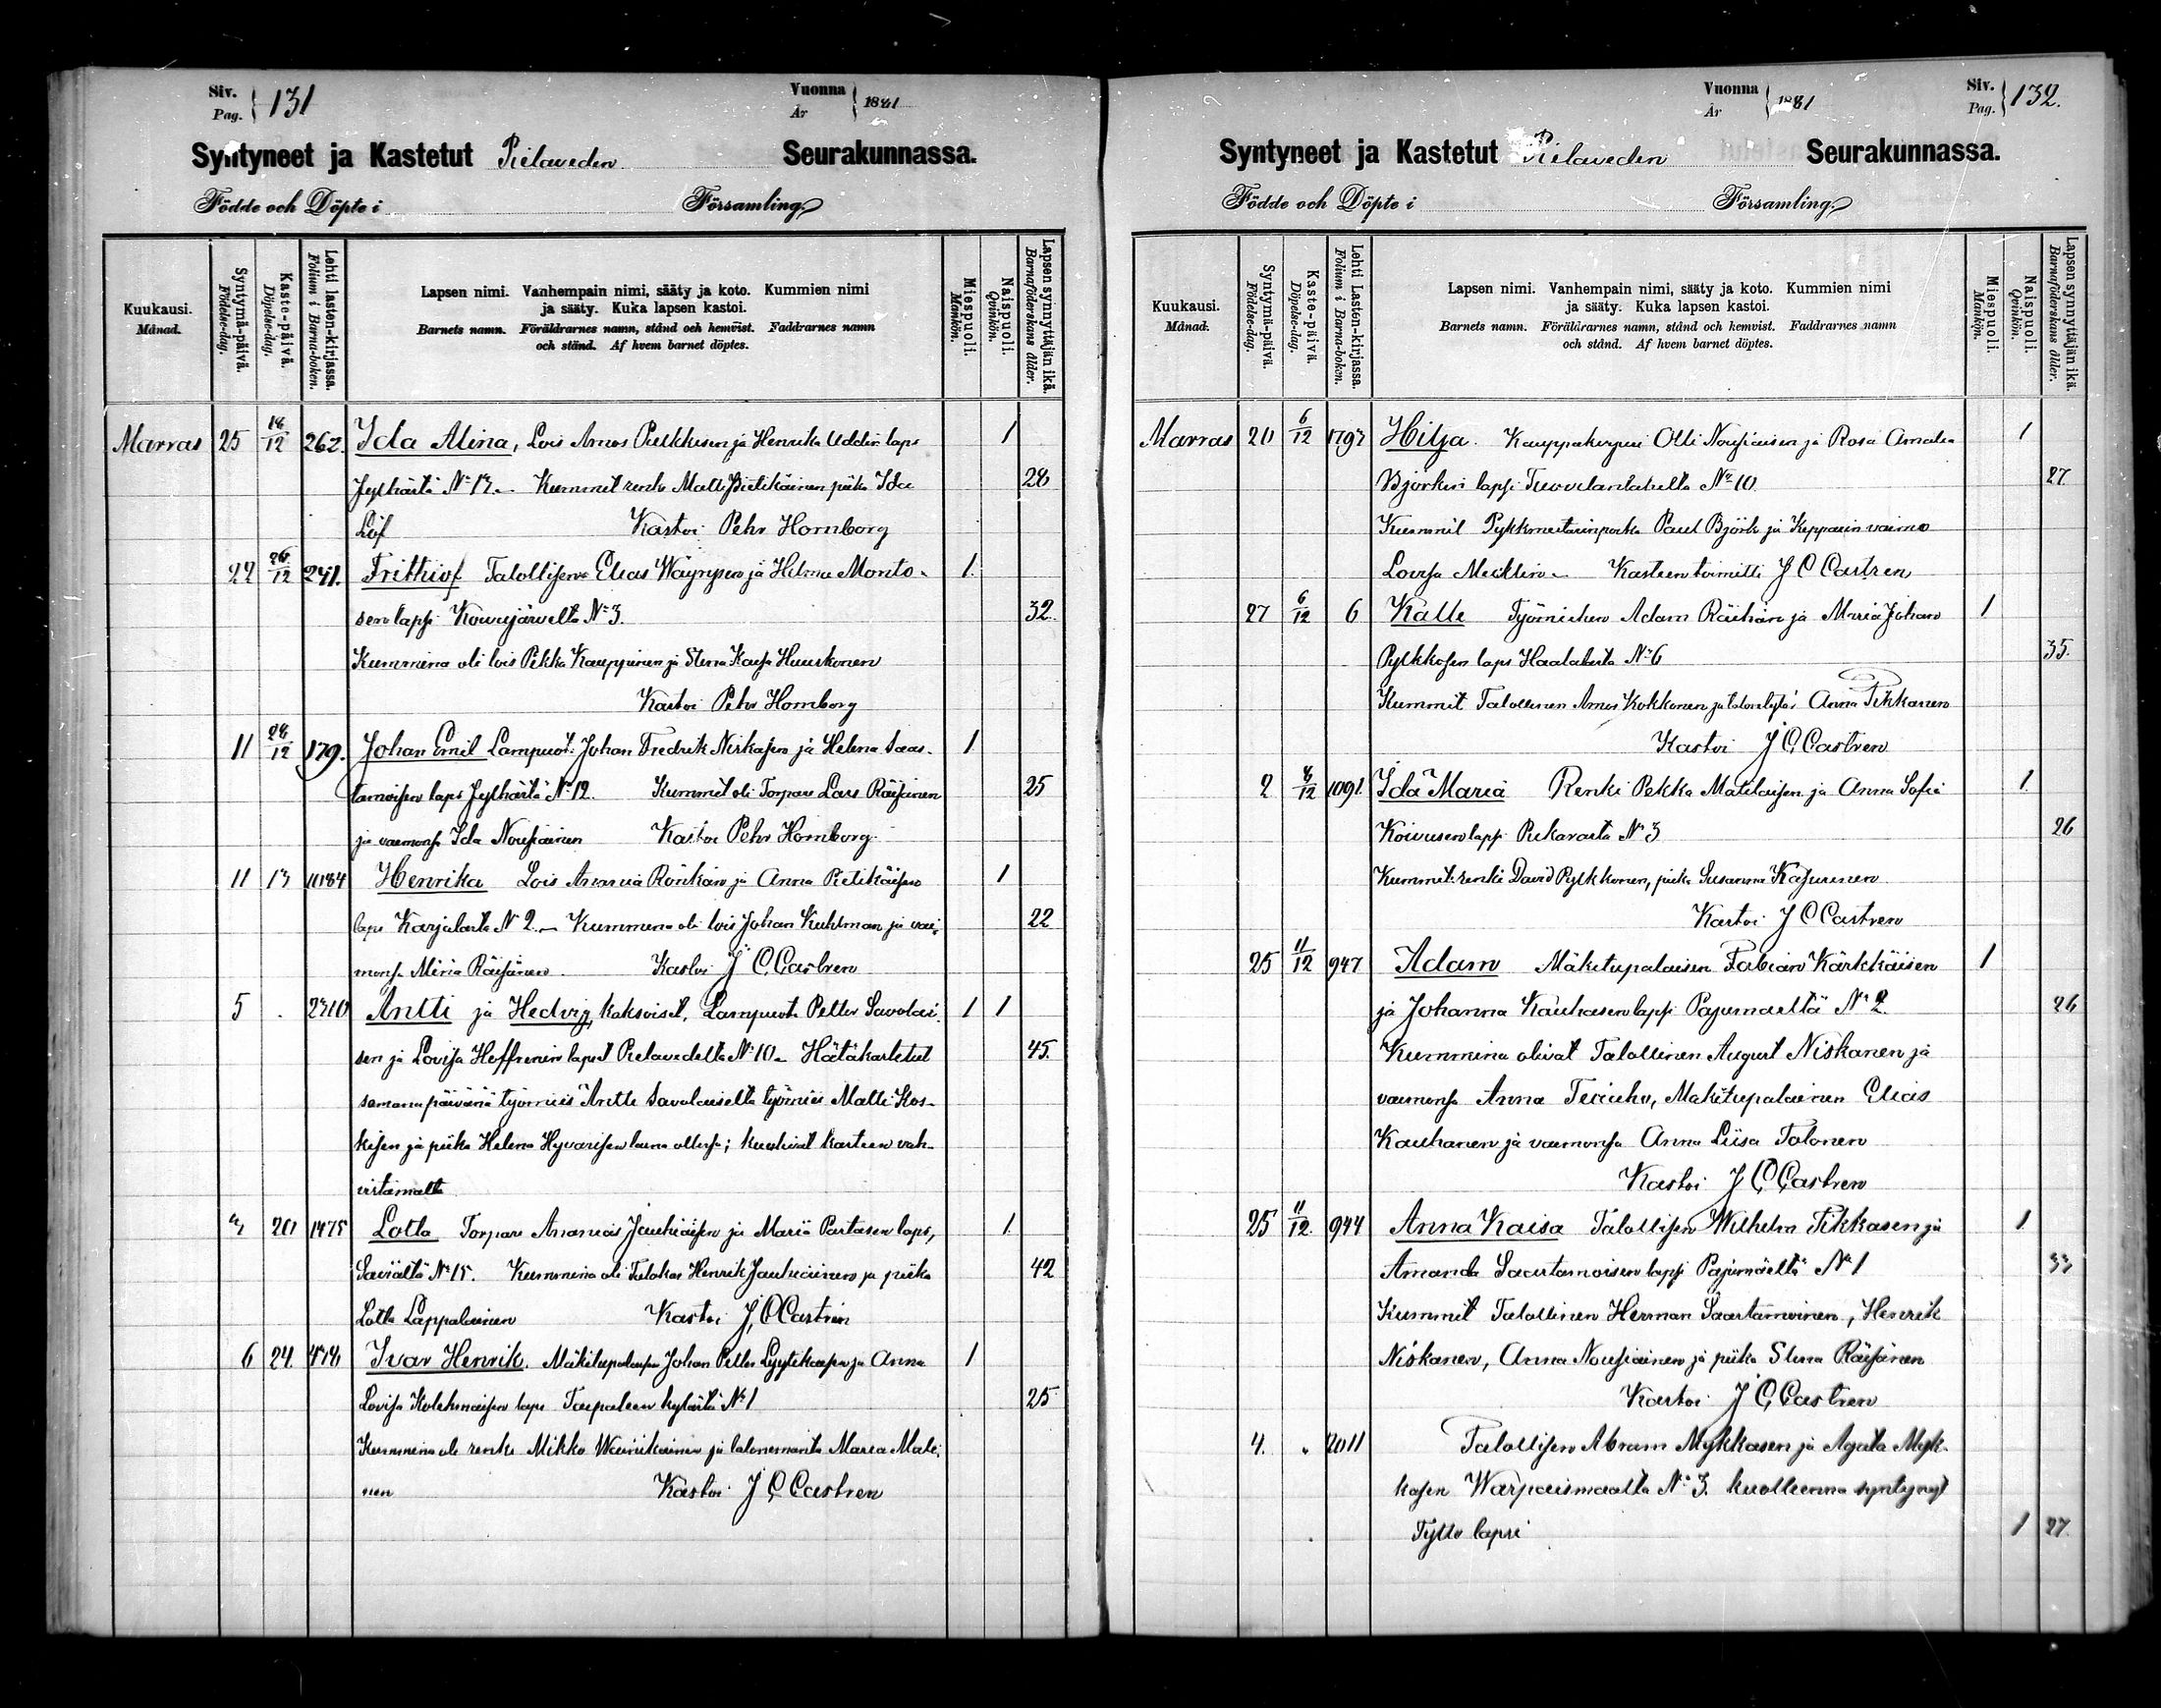 Siv. Pag. 131
Vuonna År 1881
Syntyneet ja Kastetut Pielaveden Seurakunnassa.
Födde och Döpte i Församling.
Kuukausi. Månad.
Syntymä-päivä. Födelse-dag.
Kaste-päivä. Döpelse-dag.
Lehti lasten-kirjassa. Folium i Barna-boken.
Lapsen nimi. Vanhempain nimi, sääty ja koto. Kummien nimi
ja sääty. Kuka lapsen kastoi.
Barnets namn. Föräldrarnes namn, stånd och hemvist. Faddrarnes namn
och stånd. Af hvem barnet döptes.
Miespuoli. Mankön.
Naispuoli. Qvinkön.
Lapsen synnyttäjän ikä. Barnaföderskans ålder.
Marras 25 18/12 262. Ida Alina, Lois Amos Pulkkisen ja Henrika Uddin laps 1
Jylhästä No 13. Kummit renki Matti Pietikäinen piika Ida 28
Löf Kastoi Pehr Hornborg
22 26/12 241. Frithiof Talollisen Elias Wäyrysen ja Hilma Monto- 1.
sen lapsi Koivujärveltä No 3. 32.
Kummina oli lois Pekka Kauppinen ja Stina Kaisa Huuskonen
Kastoi Pehr Hornborg
11 28/12 179. Johan Emil Lampuot. Johan Fredrik Niskasen ja Helena Saas- 1
tamoisen laps Jylhästä No 12. Kummit oli Torpari Lars Räisänen 25
ja vaimonsa Ida Nousiainen Kastoi Pehr Hornborg.
11 13 Henrika Lois Anania Rönkän ja Anna Pietikäisen 1
laps Karjalasta N 2. Kummina oli lois Johan Kuhlman ja vai- 22
monsa Miria Räisänen. Kastoi J C Castren
5 . 2310 Antti ja Hedvig, kaksoiset, Lampuoti Petter Savolai- 1 1
sen ja Lovisa Hoffrenin lapset Pielavedeltä No 10. Hätäkastetut 45.
samana päivänä työmies Antti Savolaiselta työmies Matti Kos-
kisen ja piika Helena Hyvärisen läsnä ollessa; kuolivat kasteen vah-
vistamatta
3 20 1475 Lotta Torpari Ananias Jauhiaisen ja Maria Partasen laps, 1.
Saviältä No 15. Kummina oli Talokas Henrik Jauhiainen ja piika 42
Lotta Lappalainen Kastoi J. C Castrén
6 24 Ivar Henrik. Mäkitupalaisen Johan Petter Lyytikäisen ja Anna 1
Lovisa Kolehmaisen laps Taipaleen kylästä No 1 25
Kummina oli renki Mikko Wäirikainen ja talonemäntä Maria Mati-
nen Kastoi J C Castren
Vuonna År 1881
Siv. Pag. 132.
Syntyneet ja Kastetut Pielaveden Seurakunnassa.
Födde och Döpte i Församling.
Kuukausi. Månad.
Syntymä-päivä. Födelse-dag.
Kaste-päivä. Döpelse-dag.
Lehti Lasten-kirjassa. Folium i Barna-boken.
Lapsen nimi. Vanhempain nimi, sääty ja koto. Kummien nimi
ja sääty. Kuka lapsen kastoi.
Barnets namn. Föräldrarnes namn, stånd och hemvist. Faddrarnes namn
och stånd. Af hvem barnet döptes.
Miespuoli. Mankön.
Naispuoli. Qvinkön.
Lapsen synnyttäjän ikä. Barnaföderskans ålder.
Marras 20 6/12 1793 Hilja. Olli Nousiaisen ja Rosa Amalia 1
Björkin lapsi Tuovilanlahelta No 10. 27.
Kummit Paul Björk ja Kepparin vaimo
Lovisa Mecklin. Kasteen toimitti J C Castren
27 6/12 6 Kalle Työmiehen Adam Räihän ja Maria Johan 1
Pylkkosen laps Haalahista No 6 35.
Kummit Talollinen Amos Kokkonen ja talontytär Anna Tikkanen
Kastoi J C Castren
2 8/12 1091. Ida Maria Renki Pekka Matilaisen ja Anna Sofia 1.
Koivusen lapsi Pukarasta No 3 26
Kummit: renki David Pylkkönen, piika Susanna Kajurinen.
Kastoi J C Castren
25 11/12 947 Adam Mäkitupalaisen Fabian Kärkkäisen 1
ja Johanna Kauhasen lapsi Pajumäeltä No 2. 26
Kummina olivat Talollinen August Niskanen ja
vaimonsa Anna, Mäkitupalainen Elias
Kauhanen ja vaimonsa Anna Liisa Tolonen
Kastoi J C Castren
25 11/12. 944 Anna Kaisa Talollisen Wilhelm Tikkasen ja 1.
Amanda Saastamoisen lapsi Pajumäeltä No 1 33
Kummit Talollinen Herman Saastamoinen, Henrik
Niskanen, Anna Nousiainen ja piika Stina Räisänen
Kastoi J C Castren
4. „ 2011 Talollisen Abram Mykkäsen ja Agata Myk-
käsen Warpaismaalta No 3. kuolleena syntynyt
Tyttö lapsi 1 27.